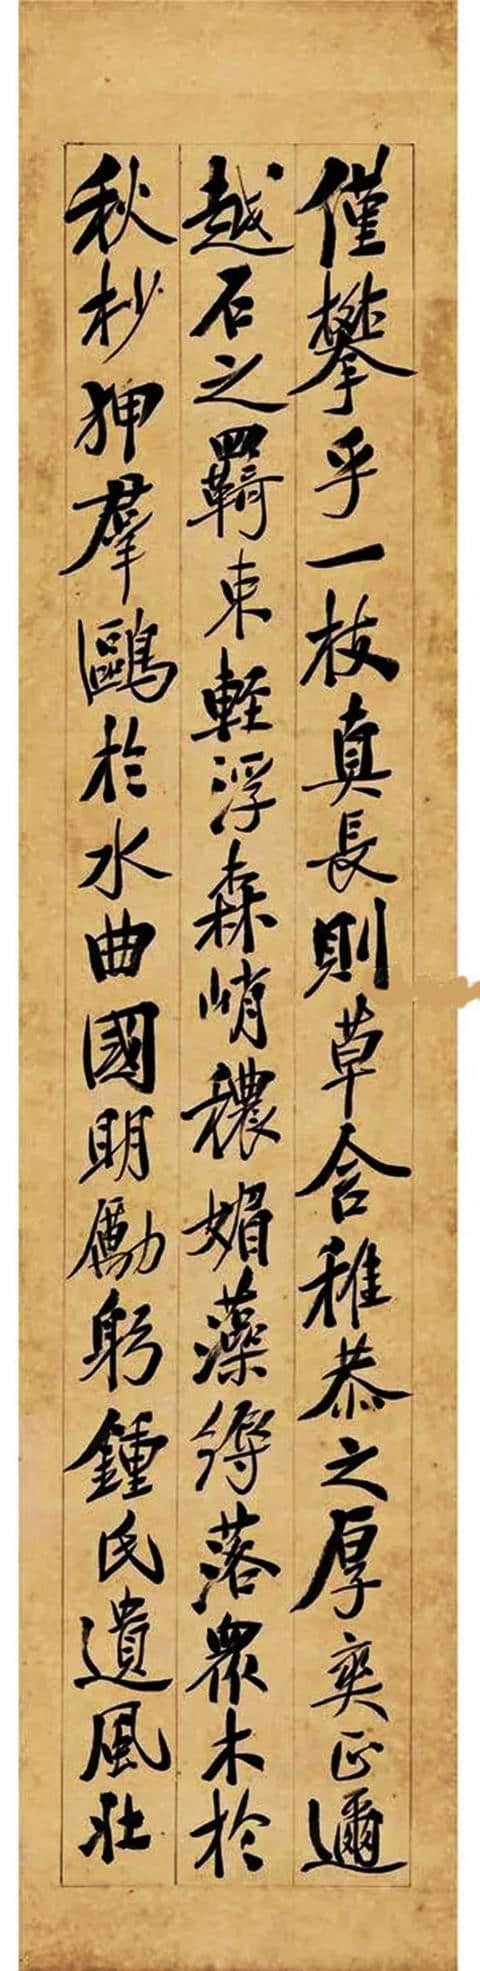 僅攀乎一枝真長則草含稚恭之厚爽正邇
越石之羇束輕浮森峭穠媚藻縟落眾木於
秋杪狎羣鷗於水曲國明勵躬鍾氏遺風壯